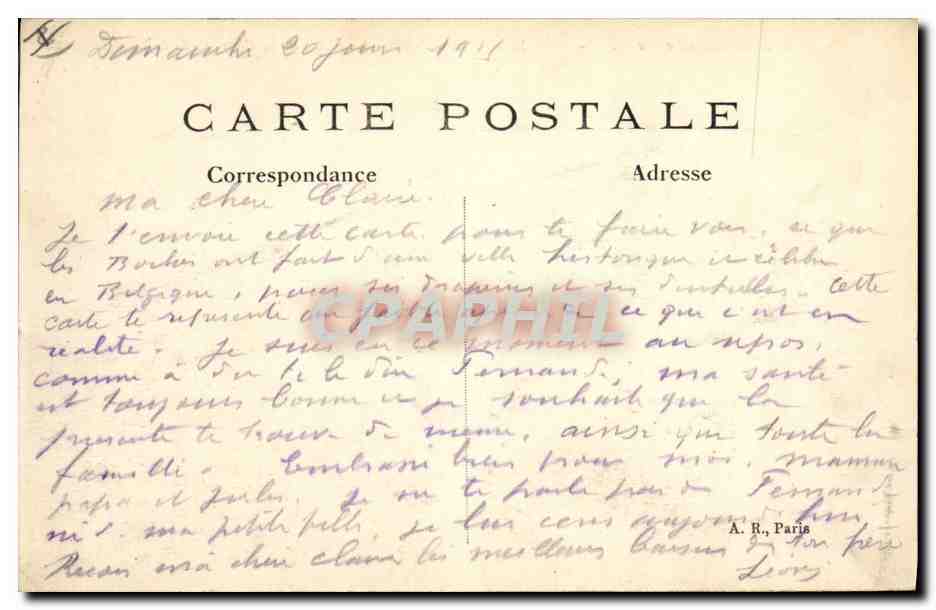 Dimanche 20 juin 1915
CARTE POSTALE
Correspondance Adresse
Ma chère Claire.
Je t'envoie cette carte pour te faire voir, ce que
les Boches ont fait d'une ville historique et célèbre
en Belgique, pour ses draperies et ses dentelles. Cette
carte te représente ce que c'est en
réalité. Je suis en ce moment au repos,
comme a dû te le dire Fernande, ma santé
est toujours bonne et je souhaite que la
présente te trouve de même, ainsi que toute la
famille. Embrasse bien pour moi, maman
papa et Jules. Je ne te parle pas de Fernande
ni d ma petite fille, je leur écris aujourd'hui
A. R., Paris
Reçois ma chère Claire les meilleurs baisers de ton frère
CPAPHIL